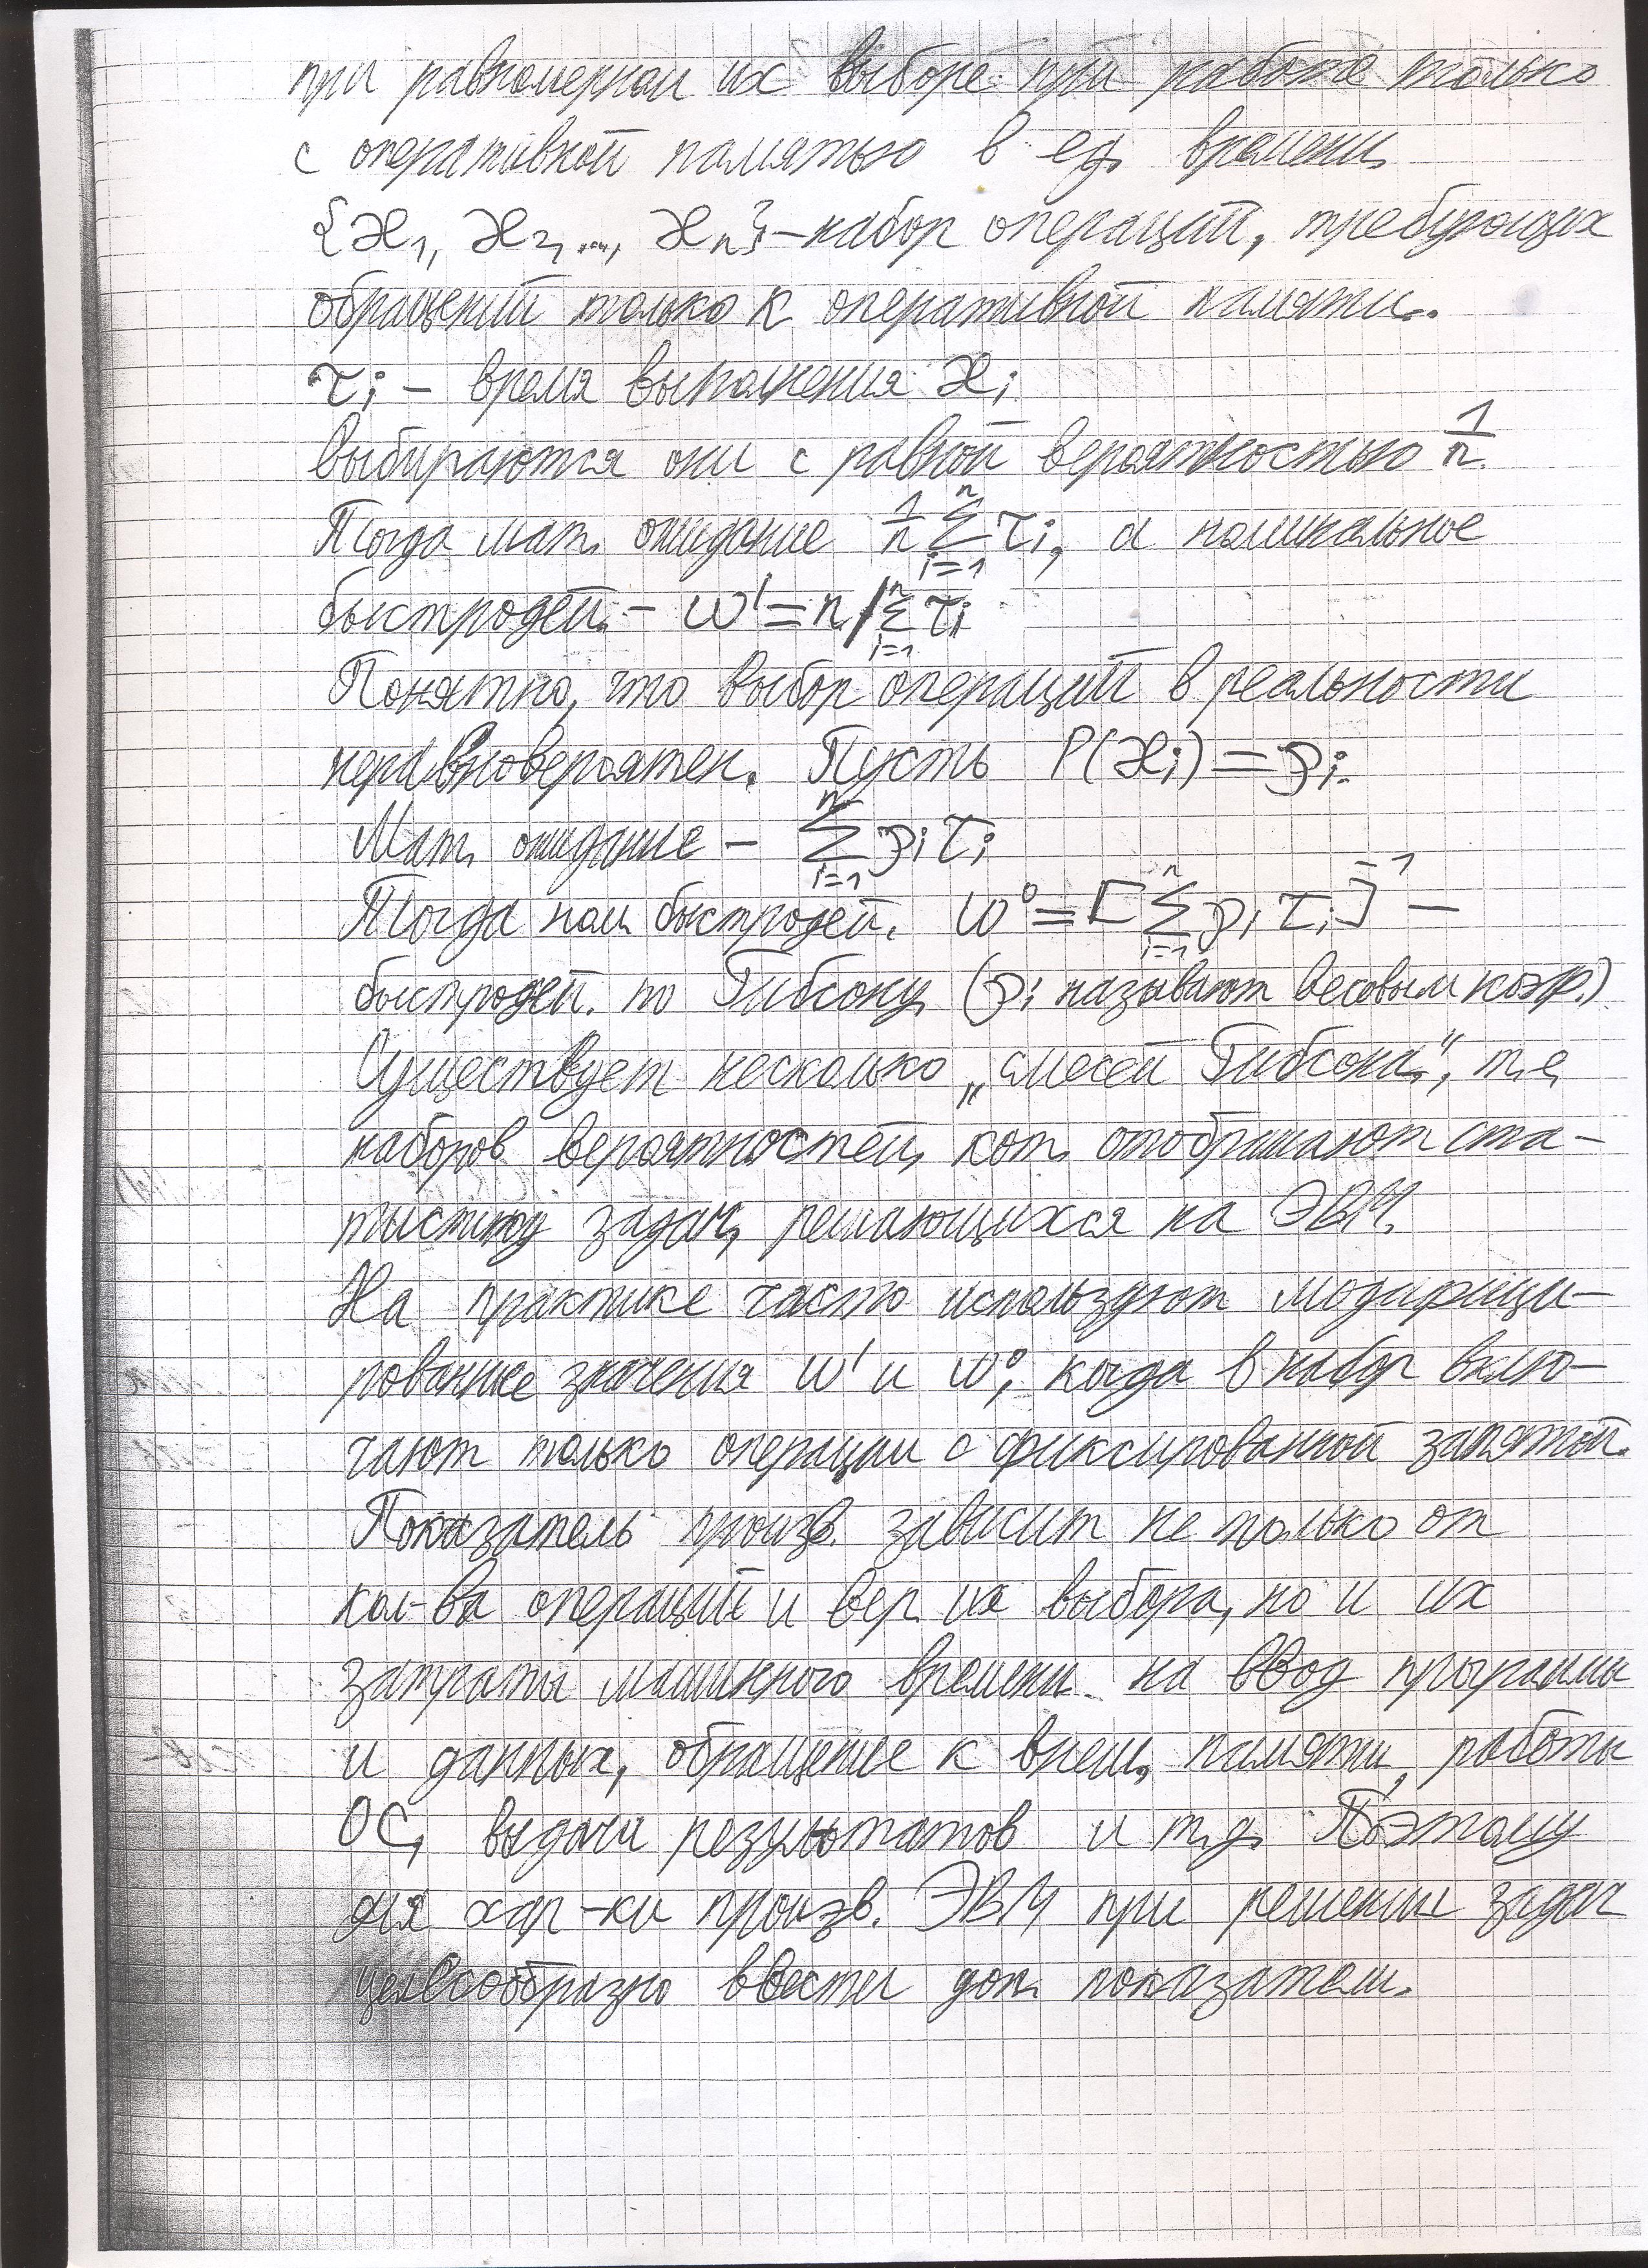 при равномерном их выборе при работе только
с оперативной памятью в ед. времени
{ℋ₁, ℋ₂, ..., ℋₙ} - набор операций, требующих
обращений только к оперативной памяти.
τᵢ - время выполнения ℋᵢ
Выбираются они с равной вероятностью 1/n
Тогда мат. ожидание 1/n Σᵢ₌₁ⁿ τᵢ, а номинальное
быстродей. - w' = n / Σᵢ₌₁ⁿ τᵢ
Понятно, что выбор операций в реальности
неравновероятен. Пусть P(ℋᵢ) = pᵢ.
Мат. ожидание - Σᵢ₌₁ⁿ pᵢ τᵢ
Тогда ном. быстродей. w⁰ = [Σᵢ₌₁ⁿ pᵢ τᵢ]⁻¹ -
быстродей. по Гибсону (pᵢ называют весовым коэф.)
Существует несколько „смесей Гибсона", т.е.
наборов вероятностей, кот. отображают ста-
тистику задач, решающихся на ЭВМ.
На практике часто используют модифици-
рованные значения w' и w⁰, когда в набор вклю-
чают только операции с фиксированной запятой.
Показатель произв. зависит не только от
кол-ва операций и вер. их выбора, но и их
затраты машинного времени на ввод программы
и данных, обращение к внеш. памяти, работы
ОС, выдачи результатов и т.д. Поэтому
для хар-ки произв. ЭВМ при решении задач
целесообразно ввести доп. показатели.